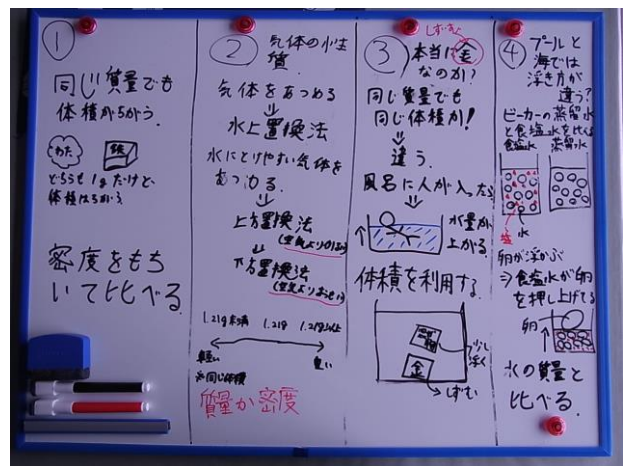 ①
同じ質量でも
体積がちがう.
わた
鉄
どちらも1gだけど、
体積はちがう
密度をもち
いて比べる.
② 気体の性
質.
気体をあつめる
⇓
水上置換法
水にとけやすい気体を
あつめる.
⇓
上方置換法
(空気より小さい)
⇓
下方置換法
(空気より大きい)
1.21g未満 1.21g 1.21g以上
軽い 重い
※同じ体積
質量か密度
しずむ
③ 本当に金
なのか?
同じ質量でも
同じ体積か!
⇓
違う.
風呂に人が入ったら
水量が
上がる.
体積を利用する.
少し
浮く
金
しずむ
④ プールと
海では
浮き方が
違う?
ビーカーの蒸留水
と食塩水を比べる
食塩水 蒸留水
塩 水
卵が浮かぶ
⇒食塩水が卵
を押し上げてる
卵
水の質量と
比べる.